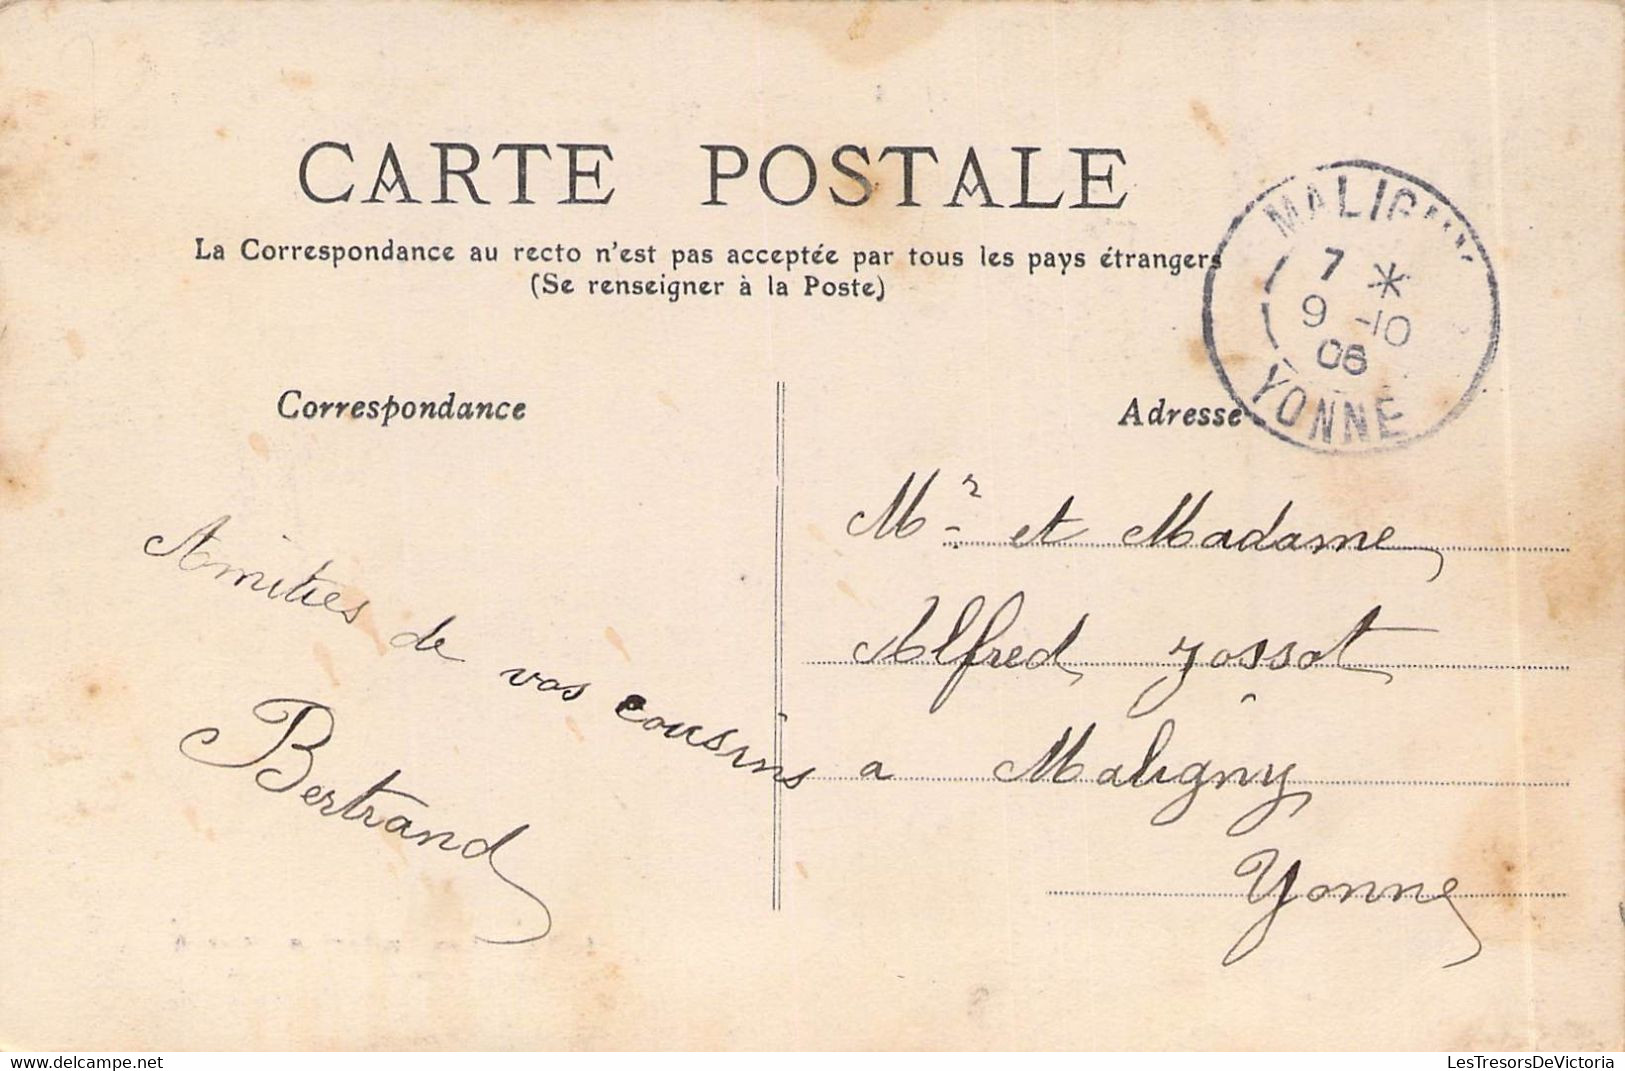 CARTE POSTALE
La Correspondance au recto n'est pas acceptée par tous les pays étrangers
(Se renseigner à la Poste)
MALIGNY
7 *
9 -10
06
YONNE
Correspondance
Amitiés de vos cousins
Bertrand
Adresse
Mr et Madame
Alfred Jossot
a Maligny
Yonne
LesTresorsDeVictoria